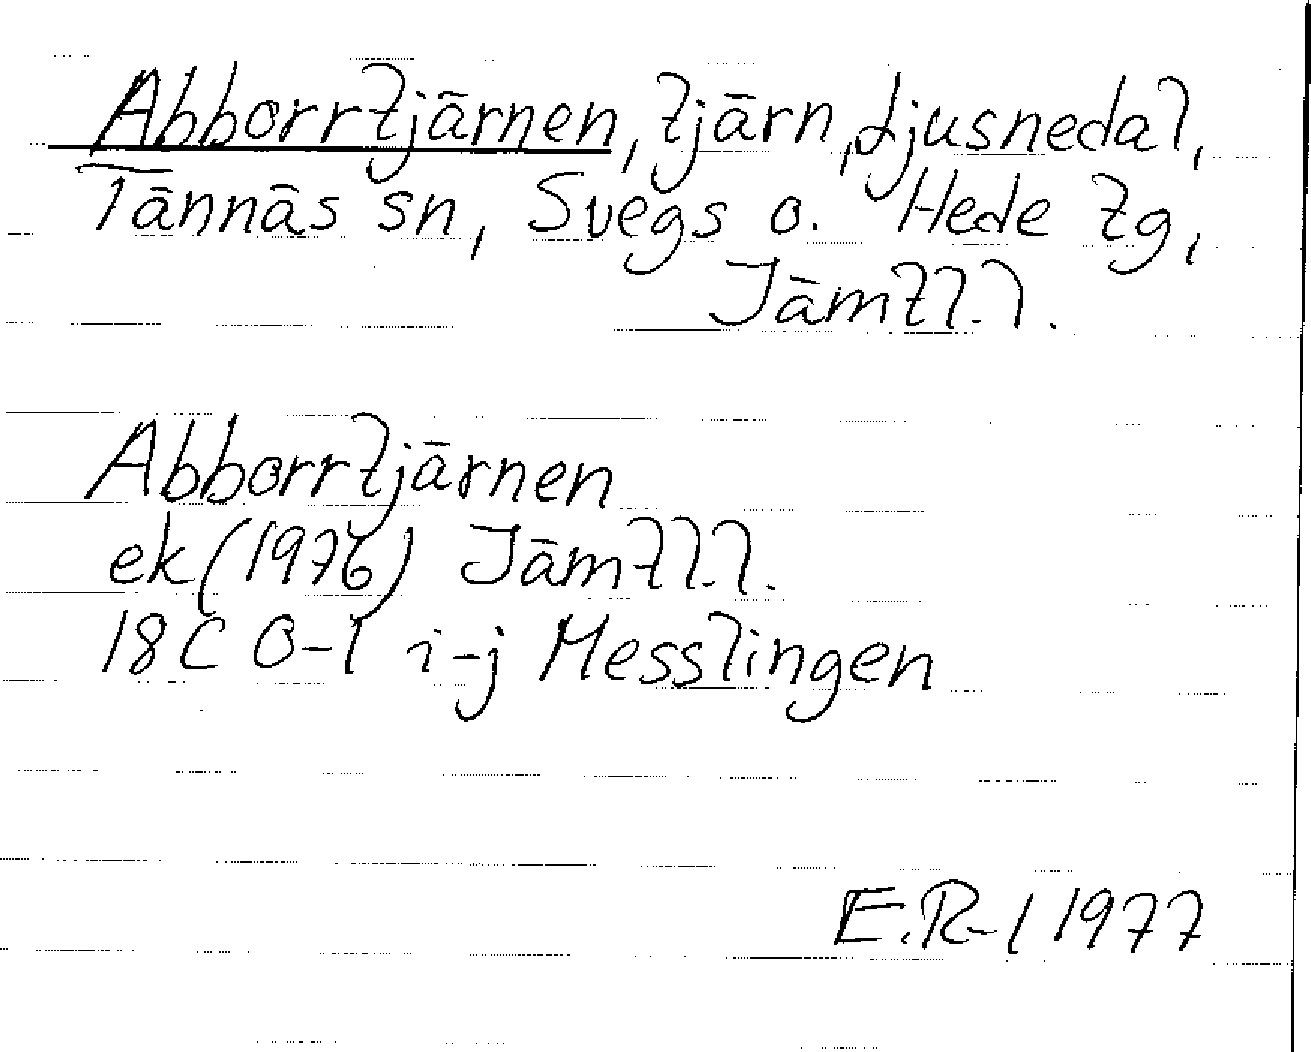 Abborrtjärnen, tjärn, Ljusnedal,
Tännäs sn, Svegs o. Hede tg,
Jämtl. l.
Abborrtjärnen
ek (1976) Jämtl. l.
18C 0-1 i-j Messlingen
E.R-l 1977